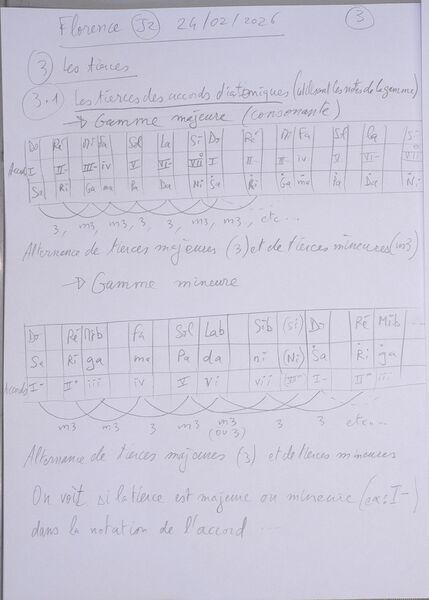 Florence J2 24/02/2026 3
3 Les tierces
3.1 Les tierces des accords diatoniques (utilisant les notes de la gamme)
→ Gamme majeure (consonante)
Do Ré Mi Fa Sol La Si Do Ré Mi Fa Sol La Si
Accords I II- III- iv V VI- VII I II- III- iv V VI- VII
Sa Ri Ga ma Pa Da Ni Sa Ri Ga ma Pa Da Ni
3, m3, m3, 3, 3, m3, m3, etc...
Alternance de tierces majeures (3) et de tierces mineures (m3)
→ Gamme mineure
Do Ré Mib Fa Sol Lab Sib (Si) Do Ré Mib
Sa Ri ga ma Pa da ni (Ni) Sa Ri ga
Accords I- II iii iv V vi vii I- II iii
m3 m3 3 m3 m3 3 3 etc...
(ou 3)
Alternance de tierces majeures (3) et de tierces mineures
On voit si la tierce est majeure ou mineure (ex: I-)
dans la notation de l'accord ...